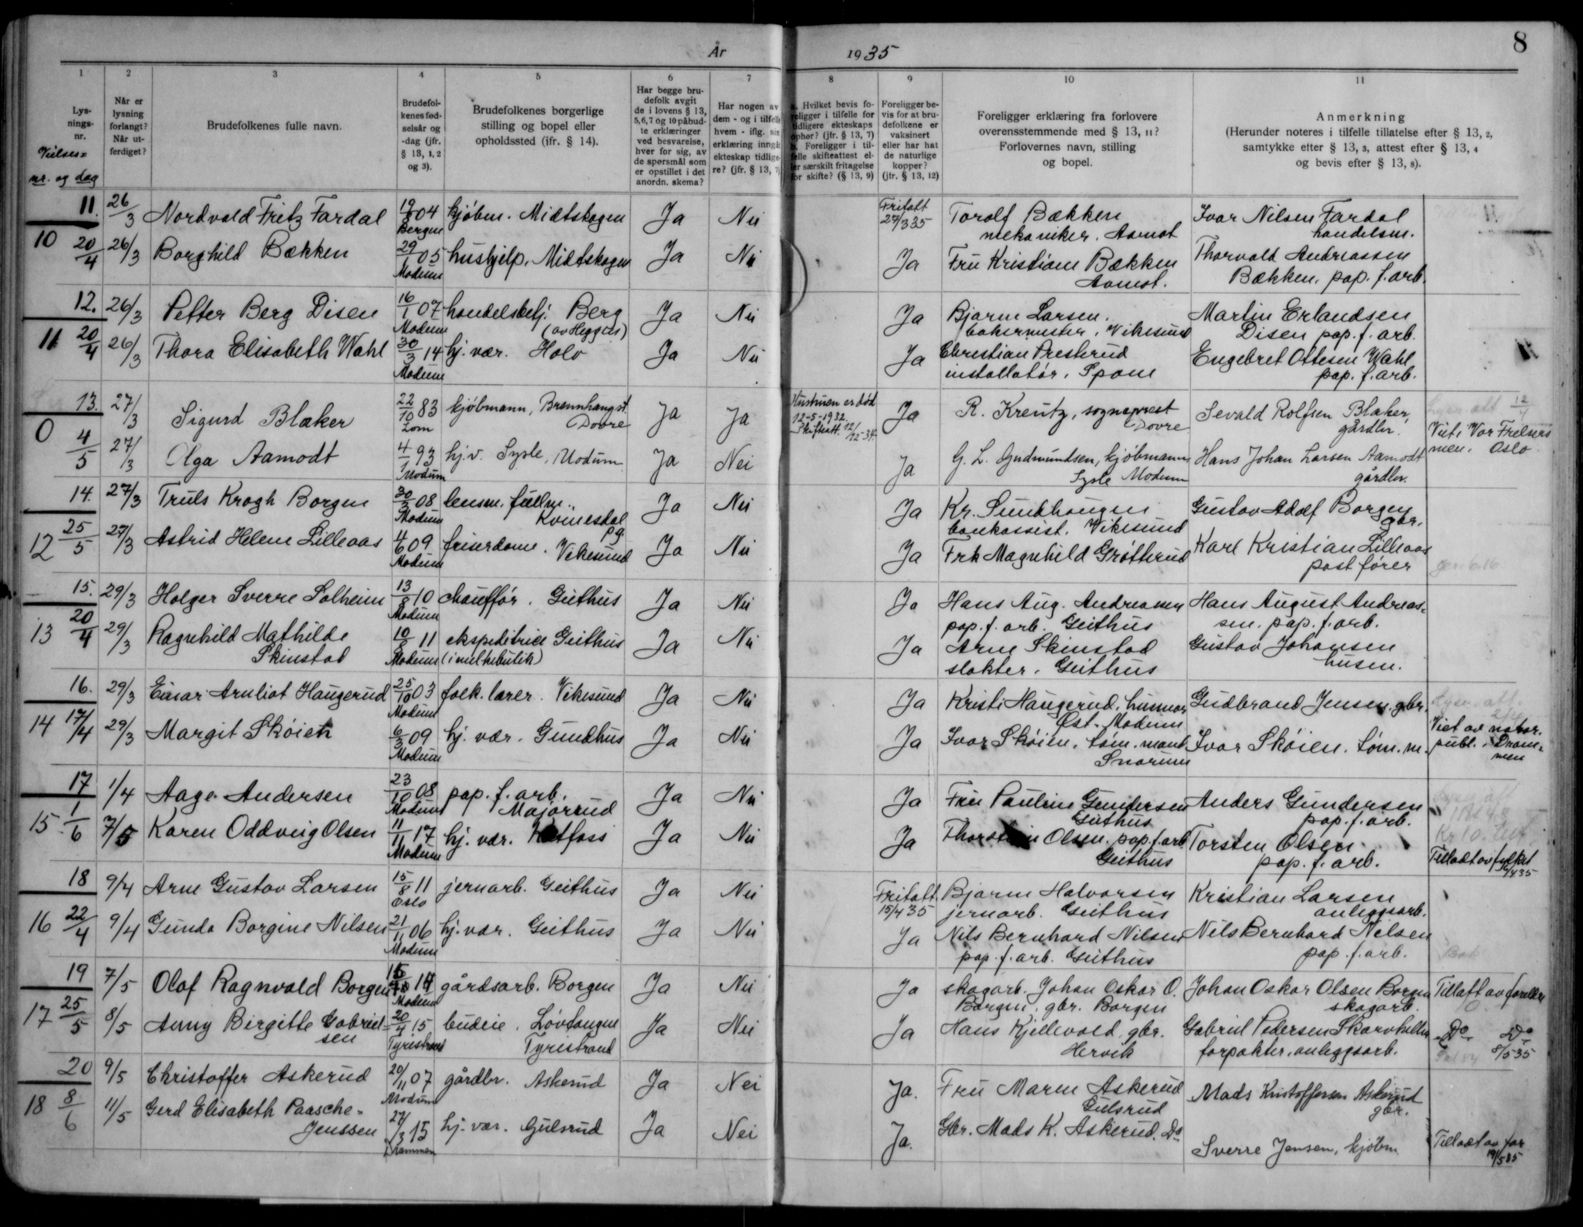 År 1935
8
1 2 3 4 5 6 7 8 9 10 11
Lys-
nings-
nr.
Vielses-
nr. og dag
Når er
lysning
forlangt?
Når ut-
ferdiget?
Brudefolkenes fulle navn.
Brudefol-
kenes fød-
selsår og
-dag (jfr.
§ 13, 1, 2
og 3).
Brudefolkenes borgerlige
stilling og bopel eller
opholdssted (jfr. § 14).
Har begge bru-
defolk avgitt
de i lovens § 13,
5,6,7 og 10 påbud-
te erklæringer
ved besvarelse,
hver for sig, av
de spørsmål som
er opstillet i det
anordn. skema?
Har nogen av
dem - og i tilfelle
hvem - iflg. sin
erklæring inngått
ekteskap tidlige-
re? (jfr. § 13, 7)
a. Hvilket bevis fo-
religger i tilfelle for
tidligere ekteskaps
ophør? (jfr. § 13, 7)
b. Foreligger i til-
felle skifteattest el-
ler særskilt fritagelse
for skifte? (§ 13, 9)
Foreligger be-
vis for at bru-
defolkene er
vaksinert
eller har hatt
de naturlige
kopper?
(jfr. § 13, 12)
Foreligger erklæring fra forlovere
overensstemmende med § 13, 11?
Forlovernes navn, stilling
og bopel.
Anmerkning
(Herunder noteres i tilfelle tillatelse efter § 13, 2,
samtykke efter § 13, 3, attest efter § 13, 4
og bevis efter § 13, 8).
11. 26/3 Nordvald Fritz Fardal 04 Bergen kjøbm. Midtskogen Ja Nei Fritatt 27/3 35 Torolf Bækken Ivar Nilsen Fardal
mekaniker. Aamot handelsm.
10 20/4 26/3 Borghild Bækken 29/1 05 Modum hushjelp. Midtskogen Ja Nei Ja Fru Kristiane Bækken Thorvald Andreassen
Aamot. Bækken, pap. f. arb.
12. 26/3 Petter Berg Disen 16/1 07 Modum handelsbetj. Berg Ja Nei Ja Bjarne Larsen. Martin Erlandsen
(av Heggen) bakermester, Vikesund Disen pap. f. arb.
11 20/4 26/3 Thora Elisabeth Wahl 30/3 14 Modum hj. vær. Holo Ja Nei Ja Christian Presterud Engebret Ottesen Wahl
installatør. Spone pap. f. arb.
13. 27/3 Sigurd Blaker 22/10 83 Lom kjøbmann, Ja Ja Hustruen er død Ja R. Kreutz, sogneprest Sevald Rolfsen Blaker
Dovre 12-5-1932 Dovre gårdbr.
Skifteatt. 12/12-34
0 4/5 27/3 Olga Aamodt 4/1 93 Modum hj.v. Sysle, Modum Ja Nei Ja G. L. Gudmundsen, kjøbmann Hans Johan Larsen Aamodt Viet i Vor Frelsers
Sysle Modum gårdbr. Oslo
14. 27/3 Truls Krogh Borgen 08 Modum lensm. fullm. Ja Nei Ja Kr. Gustav Adolf Borgen
Kvinesdal bankassist. Vikesund gbr.
12 25/5 27/3 Astrid Helene Lilleaas 4/6 09 Modum friserdame. Vikesund Ja Nei Ja Frk Magnhild Grøtterud Karl Kristian Lilleaas
postfører
15. 29/3 Holger Sverre Solheim 13/8 10 Modum chauffør. Geithus Ja Nei Ja Hans Aug. Andreassen Hans August Andreas-
pap. f. arb. Geithus sen. pap. f. arb.
13 20/4 29/3 Ragnhild Mathilde 11 Modum ekspeditrise Geithus Ja Nei Ja Arne Skinstad Gustav Johansen
Skinstad (i melkebutik) slakter. Geithus husm.
16. 29/3 Einar Arnljot Haugerud 25/10 03 Modum folk. lærer. Vikesund Ja Nei Ja Kristi Haugerud, husmor Gudbrand Jensen gbr.
Øst. Modum
14 17/4 29/3 Margit Skøien 6/3 09 Modum hj. vær. Gundhus Ja Nei Ja Ivar Skøien. tøm. mand Ivar Skøien. tøm. m. Viet av notar.
Snarum publ. Dram-
men
17 1/4 Aage Andersen 23/10 08 Modum pap. f. arb. Ja Nei Ja Fru Pauline Gundersen Anders Gundersen
Majorud Geithus pap. f. arb.
15 1/6 7/5 Karen Oddveig Olsen 11/1 17 Modum hj. vær. Katfoss Ja Nei Ja Olsen. pap. f. arb Torsten Olsen
Geithus pap. f. arb. Tilladt av fylket
18 9/4 Arne Gustav Larsen 15/8 11 Oslo jernarb. Geithus Ja Nei Fritatt 15/4 35 Bjarne Halvorsen Kristian Larsen
jernarb. Geithus anleggsarb.
16 22/4 9/4 Gunda Borgine Nilsen 21/11 06 Modum hj. vær. Geithus Ja Nei Ja Nils Bernhard Nilsen Nils Bernhard Nilsen
pap. f. arb. Geithus pap. f. arb.
19 7/5 Olaf Ragnvald Borgen 14 Modum gårdsarb. Borgen Ja Nei Ja skogarb. Johan Oskar O. Johan Oskar Olsen Borgen Tillatt av foreldre
Borgen, gbr. Borgen skogarb.
17 25/5 8/5 Anny Birgitte Gabriel- 20/4 15 Tyristrand budeie. Ja Nei Ja Hans Kjellevold gbr. Gabriel Pedersen Do Do
sen Tyristrand Hervik forpakter. anleggsarb. 8/5 35
20 9/5 Christoffer Askerud 20/11 07 Modum gårdbr. Askerud Ja Nei Ja. Fru Maren Askerud Mads Kristoffersen Askerud
Gulsrud gbr.
18 8/6 11/5 Gerd Elisabeth Paasche- 27/3 15 Drammen hj. vær. Gulsrud Ja Nei Ja. Gbr. Mads K. Askerud. Do Sverre Jensen, kjøbm. Tilladt av far
Jenssen